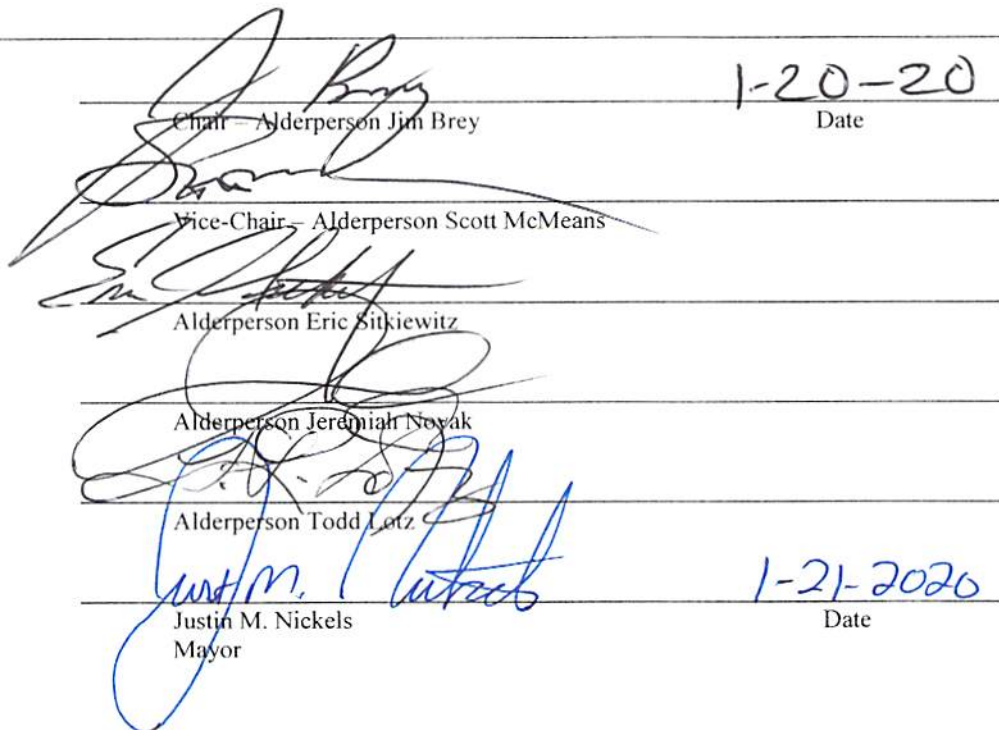 J Brey 1-20-20
Chair – Alderperson Jim Brey Date
Vice-Chair – Alderperson Scott McMeans
Eric
Alderperson Eric Sitkiewitz
Alderperson Jeremiah Novak
Alderperson Todd Lotz
Justin M. Nickels 1-21-2020
Justin M. Nickels Date
Mayor